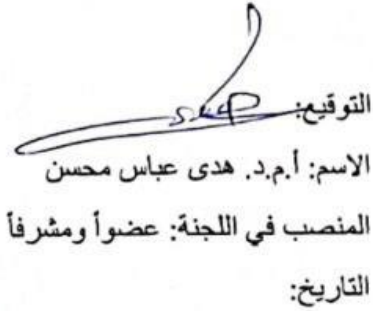 التوقيع:
الاسم: أ.م.د. هدى عباس محسن
المنصب في اللجنة: عضواً ومشرفاً
التاريخ: